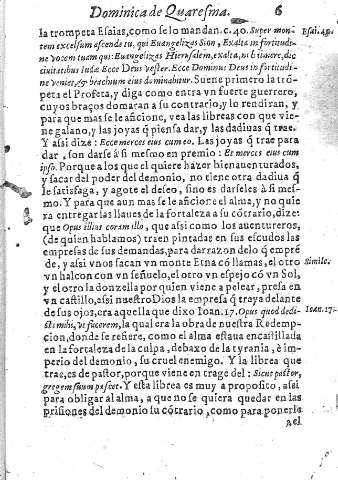 Dominica de Quaresma. 6
la trompeta Esaias, como se lo mandan. c. 40. Super mon- Esai. 40.
tem excelsum ascende tu, qui Euangelizas Sion, Exalta in fortitudi-
ne vocem tuam qui: Euangelizas Hierusalem, exalta, ni timere, dic
ciuitatibus Iudæ Ecce Deus vester. Ecce Dominus Deus in fortitudi-
ne veniet, & brachium eius dominabitur. Suene primero la trõ-
peta el Profeta, y diga como entra vn fuerte guerrero,
cuyos braços domaran a su contrario, y lo rendiran, y
para que mas se le aficione, vea las libreas con que vie-
ne galano, y las joyas q̃ piensa dar, y las dadiuas q̃ trae.
Y assi dize: Ecce merces eius cum eo. Las joyas q̃ trae para
dar, son darse à si mesmo en premio: Et merces eius cum
ipso. Porque a los que el quiere hazer bienauenturados,
y sacar del poder del demonio, no tiene otra dadiua q̃
le satisfaga, y agote el deseo, sino es darseles à si mes-
mo. Y para que aun mas se le aficione el alma, y no quie
ra entregar las llaues de la fortaleza a su cõtrario, dize:
que Opus illius coram illo, que assi como los auentureros,
(de quien hablamos) traen pintadas en sus escudos las
empresas de sus demandas, para dar razon delo q̃ empre
de, y assi vnos sacan vn monte Etna cõ llamas, el otro Simile.
vn halcon con vn señuelo, el otro vn espejo cõ vn Sol,
y el otro la donzella por quien viene a pelear, presa en
vn castillo, assi nuestro Dios la empresa q̃ traya delante
de sus ojos, era aquella que dixo Ioan. 17. Opus quod dedi- Ioan. 17.
sti mihi, vt facerem, la qual era la obra de nuestra Redemp-
cion, donde se refiere, como el alma estaua encastillada
en la fortaleza de la culpa, debaxo de la tyrania, è im-
perio del demonio, su cruel enemigo. Y la librea que
trae, es de pastor, porque viene en trage del: Sicut pastor,
gregem suum pascet. Y esta librea es muy a proposito, assi
para obligar al alma, a que no se quiera quedar en las
prisiones del demonio su cõtrario, como para ponerle